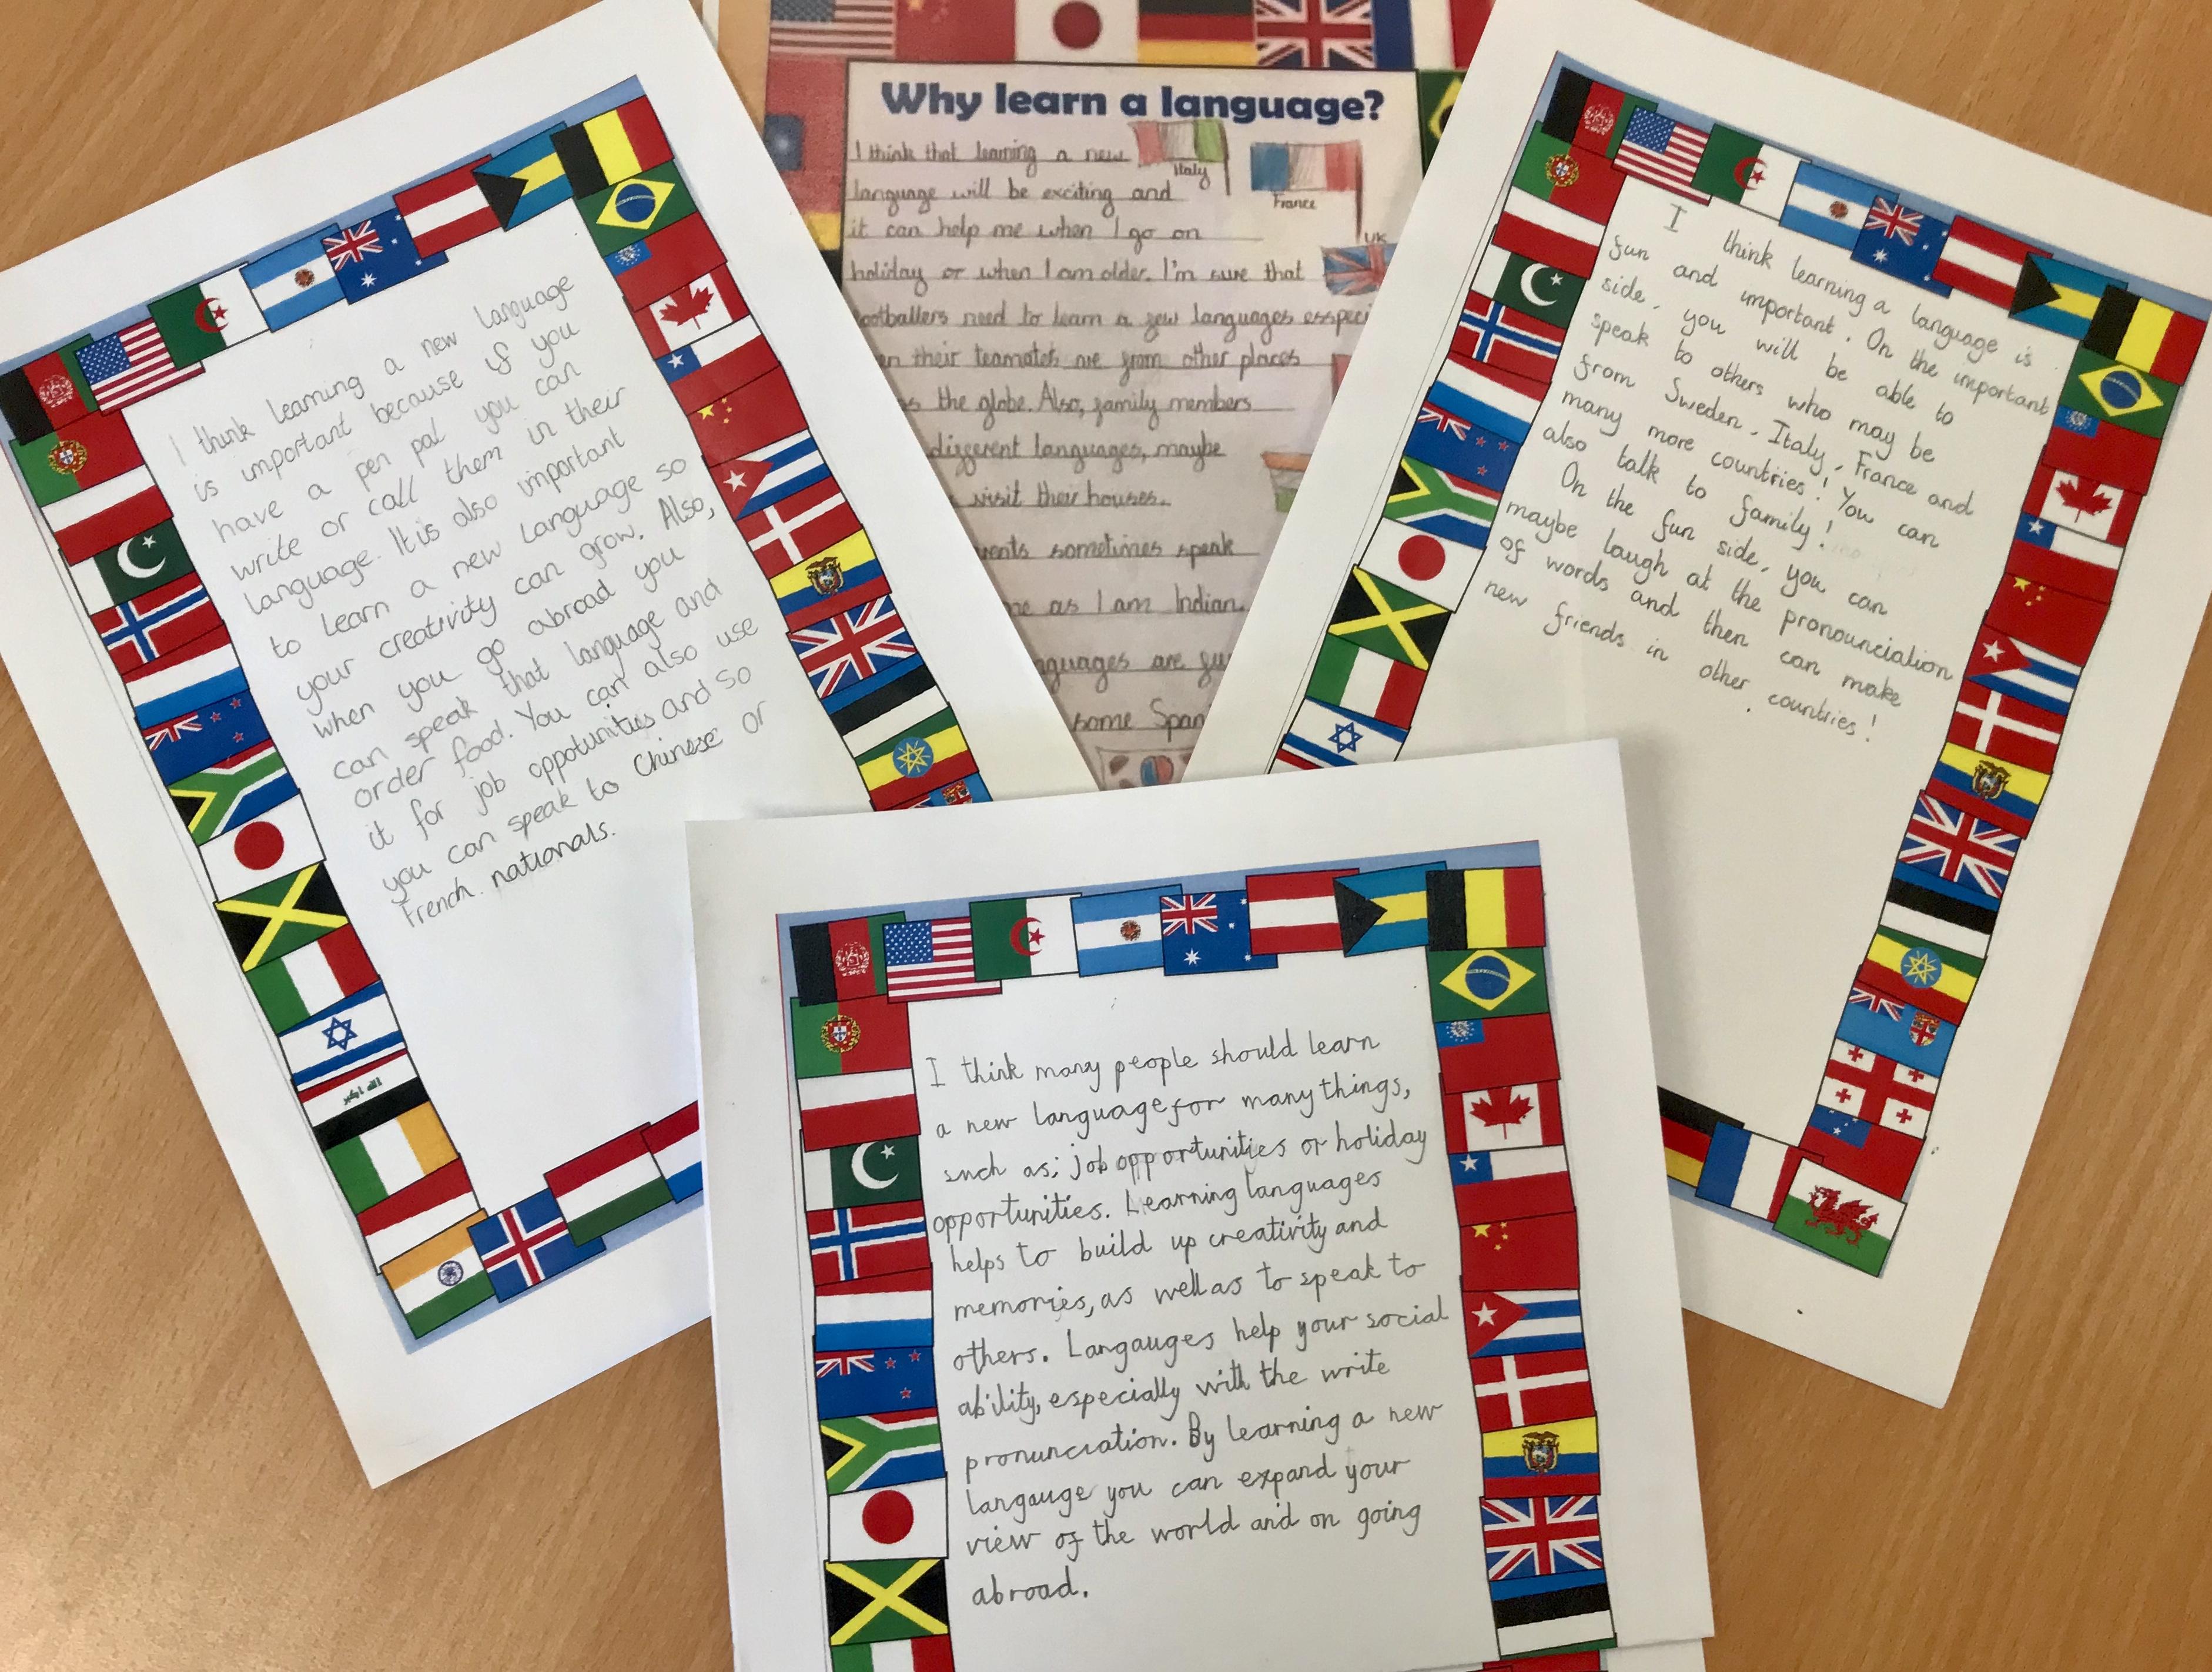 I think learning a new language
is important because if you
have a pen pal you can
write or call them in their
language. It is also important
to learn a new language so
your creativity can grow. Also,
when you go abroad you
can speak that language and
order food. You can also use
it for job oppotunities and so
you can speak to Chinese or
French nationals.
Why learn a language?
I think that learning a new
language will be exciting and
it can help me when I go on
holiday or when I am older. I'm sure that
footballers need to learn a few languages esspeci
their teamates are from other places
the globe. Also, family members
different languages, maybe
visit their houses.
sometimes speak
as I am Indian.
are
some
Italy
France
UK
I think learning a language is
fun and important. On the important
side, you will be able to
speak to others who may be
from Sweden, Italy, France and
many more countries! You can
also talk to family!
On the fun side, you can
maybe laugh at the pronounciation
of words and then can make
new friends in other countries!
I think many people should learn
a new language for many things,
such as; job opportunities or holiday
opportunities. Learning languages
helps to build up creativity and
memories, as well as to speak to
others. Langauges help your social
ability, especially with the write
pronunciation. By learning a new
langauge you can expand your
view of the world and on going
abroad.